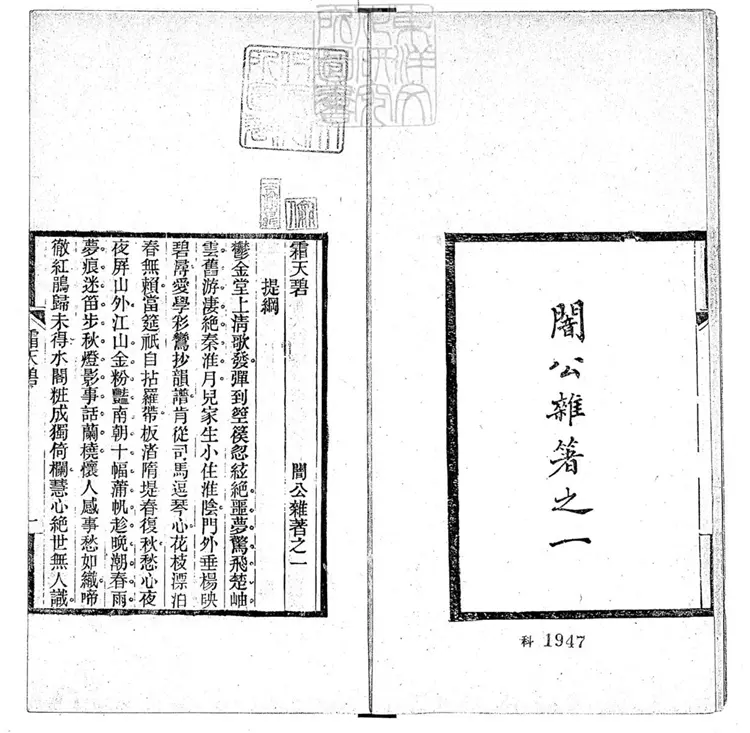 闇公雜箸之一
科 1947
霜天碧
闇公雜著之一
提綱
鬱金堂上淸歌發。彈到箜篌忽絃絶。噩夢驚飛楚岫
雲。舊游凄絶秦淮月。兒家生小住淮陰。門外垂楊映
碧潯。愛學彩鸞抄韻譜。肯從司馬逗琴心。花枝漂泊
春無賴。當筵祇自拈羅帶。板渚隋堤春復秋。愁心夜
夜屏山外。江山金粉豔南朝。十幅蒲帆趁晚潮。春雨
夢痕迷笛步。秋燈影事話蘭橈。懷人感事愁如織。啼
徹紅鵑歸未得。水閣粧成獨倚欄。慧心絶世無人識。
霜天碧
一